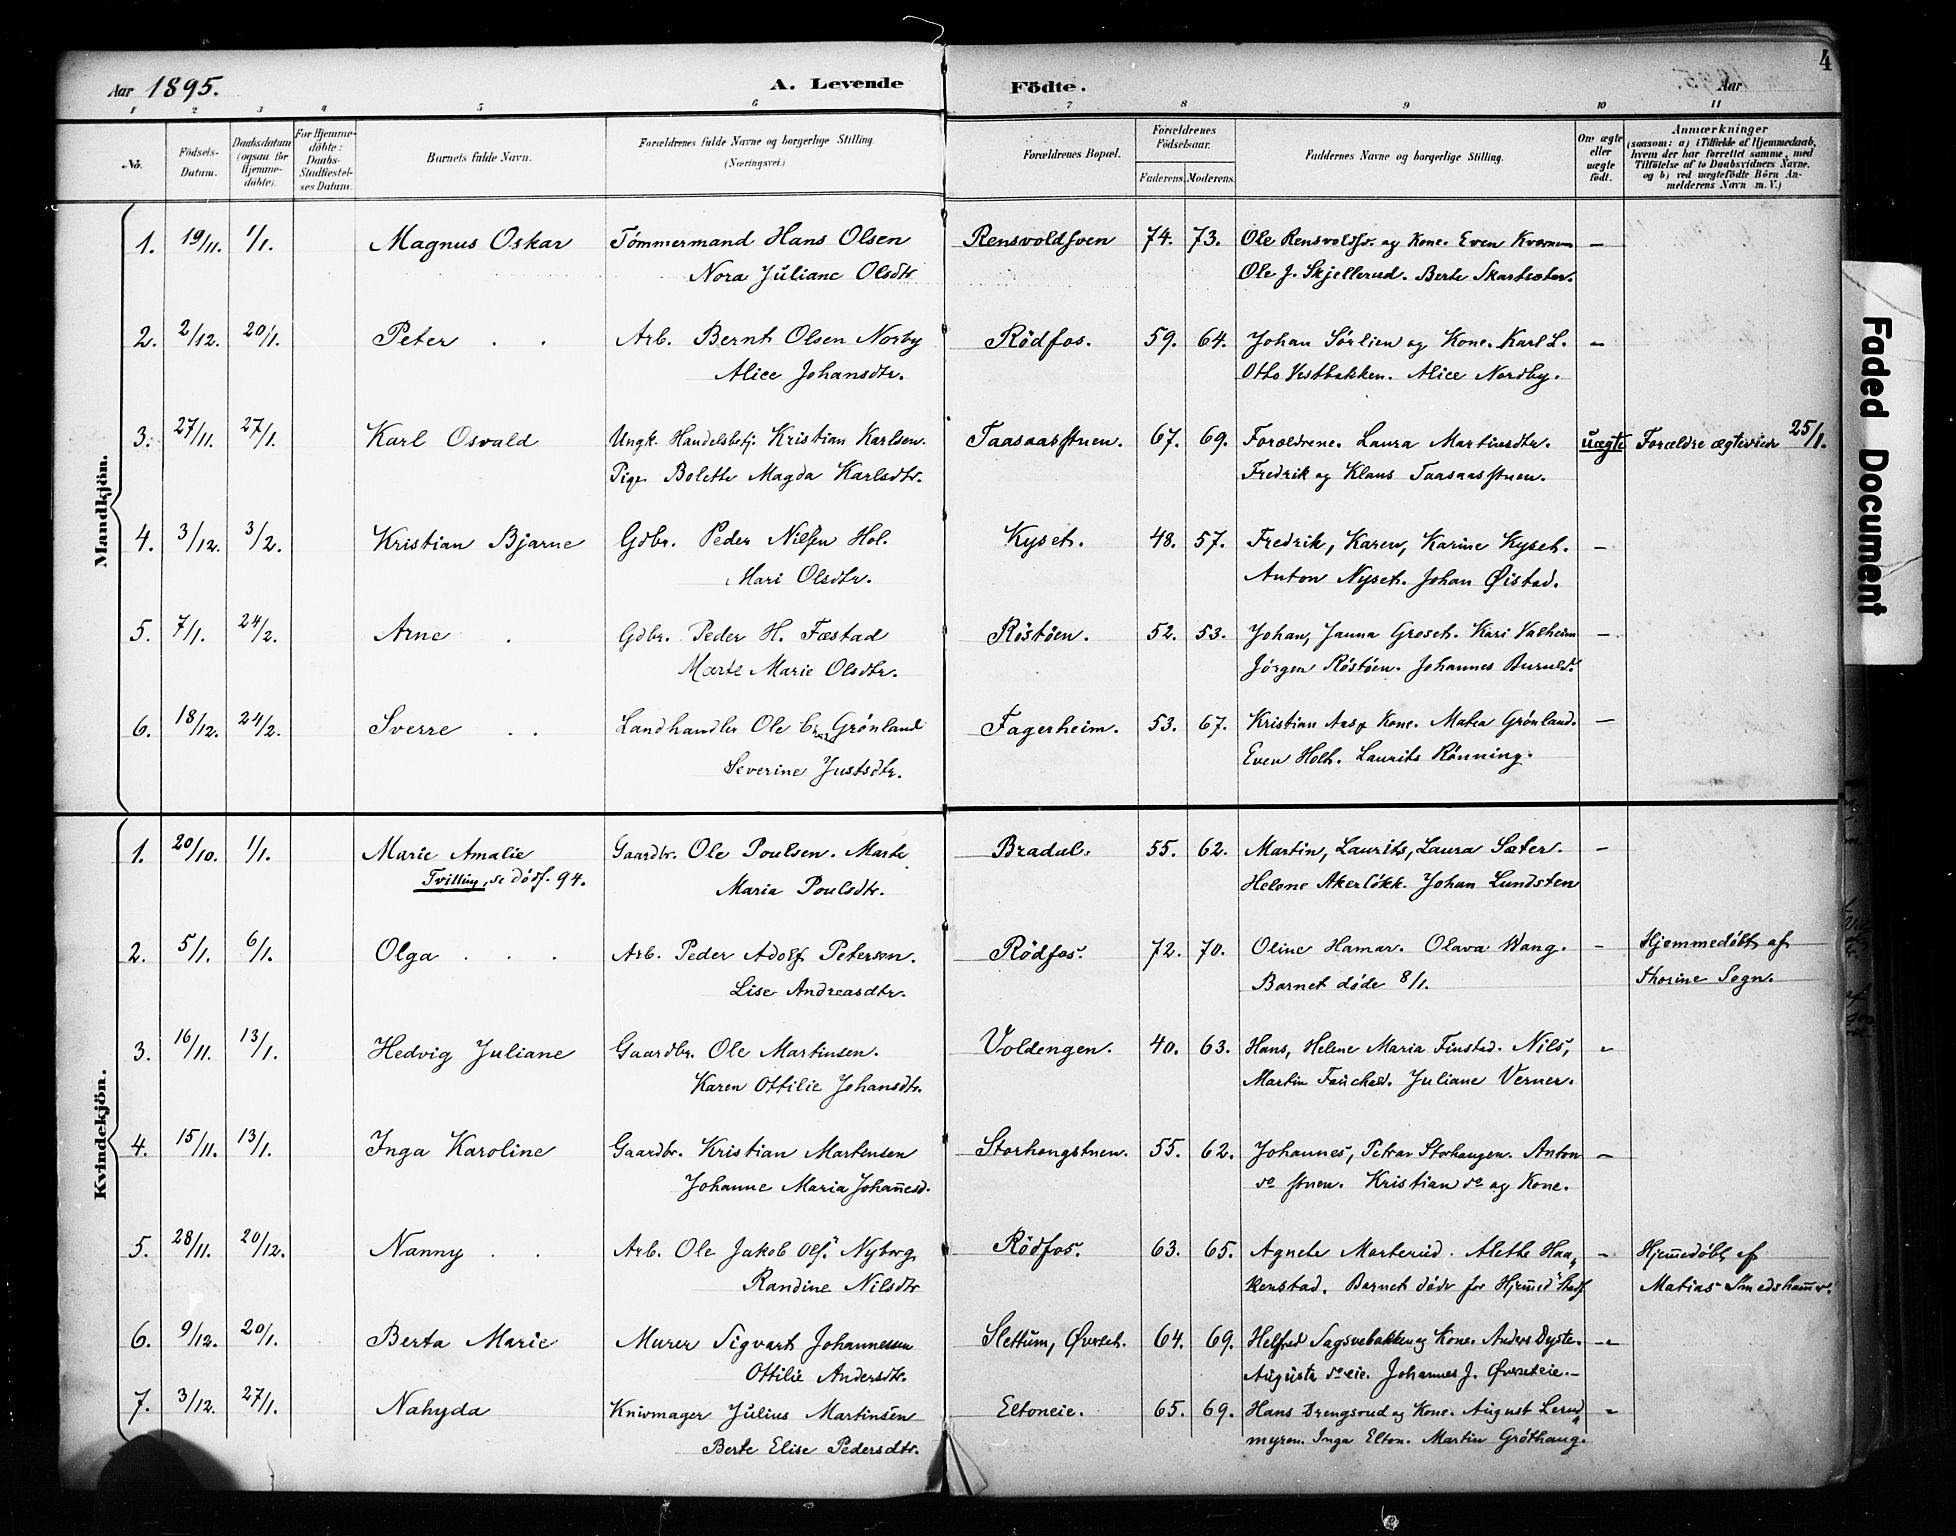 4
Aar 1895. A. Levende Födte. Aar
1 2 3 4 5 6 7 8 9 10 11
No. Födsels-Datum. Daabsdatum (ogsaa for Hjemmedöbte). For Hjemmedöbte: Daabs-Stadfæstelses Datum. Barnets fulde Navn. Forældrenes fulde Navne og borgerlige Stilling. (Næringsvei.) Forældrenes Bopæl. Forældrenes Födselsaar. Faderens. Moderens. Faddernes Navne og borgerlige Stilling. Om ægte eller uægte födt. Anmærkninger (saasom: a) i Tilfælde af Hjemmedaab, hvem der har forrettet samme, med Tilföielse af to Daabsvidners Navne, og b) ved uægtefödte Börn Anmelderens Navn m. V.)
Mandkjön.
1. 19/11. 1/1. Magnus Oskar Tömmermand Hans Olsen Rensvoldsven 74. 73. Ole Rensvoldsv. og Kone. Even Kvernen —
Nora Juliane Olsdtr. Ole J. Skjellerud. Berte Skartsæter.
2. 2/12. 20/1. Peter . . Arb. Bernt Olsen Norby Rödfos. 59. 64. Johan Sörlien og Kone. Karl L. —
Alice Johansdtr. Otto Vestbakken. Alice Nordby.
3. 27/11. 27/1. Karl Osvald Ungk. Handelsbetj. Kristian Karlsen. Taasaasstuen. 67. 69. Forældrene. Laura Martinsdtr. uægte Forældre ægteviede 25/1.
Pige Bolette Magda Karlsdtr. Fredrik og Klaus Taasaasstuen.
4. 3/12. 3/2. Kristian Bjarne Gdbr. Peder Nilsen Hol. Kyset. 48. 57. Fredrik, Karen, Karine Kyset. —
Mari Olsdtr. Anton Nyset. Johan Øistad.
5. 7/1. 24/2. Arne . Gdbr. Peder H. Fæstad Röstöen. 52. 53. Johan, Janna Groset. Kari Valheim —
Marte Marie Olsdtr. Jörgen Röstöen. Johannes
6. 18/12. 24/2. Sverre . . Landhandler Ole Grönland Fagerheim. 53. 67. Kristian Aas og Kone. Matea Grönland. —
Severine Justsdtr. Even Holt. Laurits Rönning.
Kvindekjön.
1. 20/10. 1/1. Marie Amalie Gaardbr. Ole Poulsen. Marte Bradal. 55. 62. Martin, Laurits, Laura Sæter. —
Tvilling, se Dödf. 94. Maria Poulsdtr. Helene Akerlökk. Johan Lundsten
2. 5/1. 6/1. Olga . . . Arb. Peder Adolf Petersen. Rödfos. 72. 70. Oline Hamar. Olava Wang. — Hjemmedöbt af
Lise Andreasdtr. Barnet döde 8/1. Thorine Sogn.
3. 16/11. 13/1. Hedvig Juliane Gaardbr. Ole Martinsen. Voldengen. 40. 63. Hans, Helene Maria Finstad. Nils, —
Karen Ottilie Johansdtr. Martin Fauchald. Juliane Verner.
4. 15/11. 13/1. Inga Karoline Gaardbr. Kristian Martensen Storhongstuen. 55. 62. Johannes, Petra Storhaugen. Anton —
Johanne Maria Johannesd. do stuen. Kristian do og Kone.
5. 28/11. 20/12. Nanny . . Arb. Ole Jakob Ols. Nyborg Rödfos. 63. 65. Agnete Marterud. Alethe Haa„ — Hjemmedöbt af
Randine Nilsdtr kenstad. Barnet döde för Hjemmed. Stadf. Matias Smedshammer.
6. 9/12. 20/1. Berta Marie Murer Sigvart Johannessen Slettum, Øverset. 64. 69. Helfred Sagsvebakken og Kone. Anders Dyste. —
Ottilie Andersdtr. Augusta do eie. Johannes J. Øverseteie.
7. 3/12. 27/1. Nahyda Knivmager Julius Martinsen Eltoneie. 65. 69. Hans Drengsrud og Kone. August Lerud„ —
Berte Elise Pedersdtr. myren. Inga Elton. Martin Gröthaug.
Faded Document